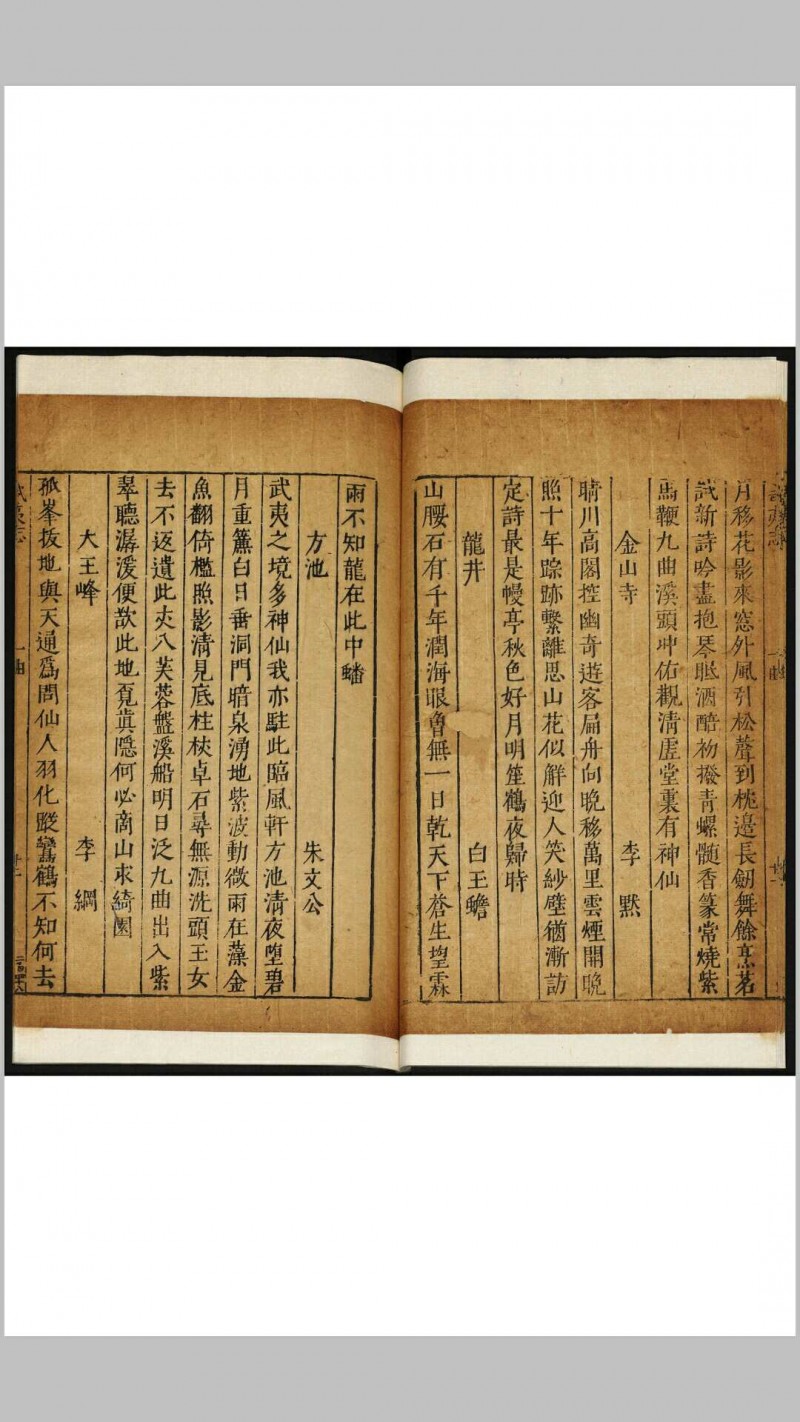 月移花影來窓外風引松聲到枕邊長劒舞餘烹茗
試新詩吟盡抱琴眠酒醅初撥青螺髓香篆常燒紫
馬鞭九曲溪頭冲佑觀清虛堂裏有神仙
金山寺 李默
晴川高閣控幽奇遊客扁舟向晚移萬里雲煙開晩
照十年踪跡繫離思山花似解迎人笑紗壁猶漸訪
定詩最是幔亭秋色好月明笙鶴夜歸時
龍井 白玉蟾
山腰石有千年潤海眼魯無一日乾天下蒼生望霖
雨不知龍在此中蟠
方池 朱文公
武夷之境多神仙我亦駐此臨風軒方池清夜墮碧
月重簾白日垂洞門暗泉湧地紫波動微雨在藻金
魚翻倚檻照影清見底柱杖卓石尋無源洗頭王女
去不返遺此夾八芙蓉盤溪船明日泛九曲出入紫
翠聽潺湲便欲此地覓眞隱何必商山求綺園
大王峰 李綱
孤峯拔地與天通爲問仙人羽化蹤鸞鶴不知何去